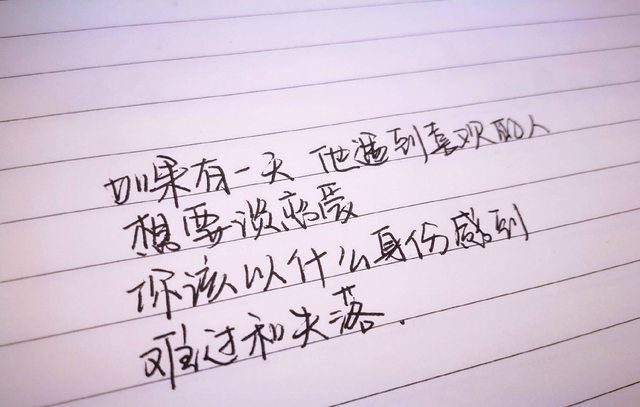 如果有一天 他遇到喜欢的人
想要谈恋爱
你该以什么身份感到
难过和失落.